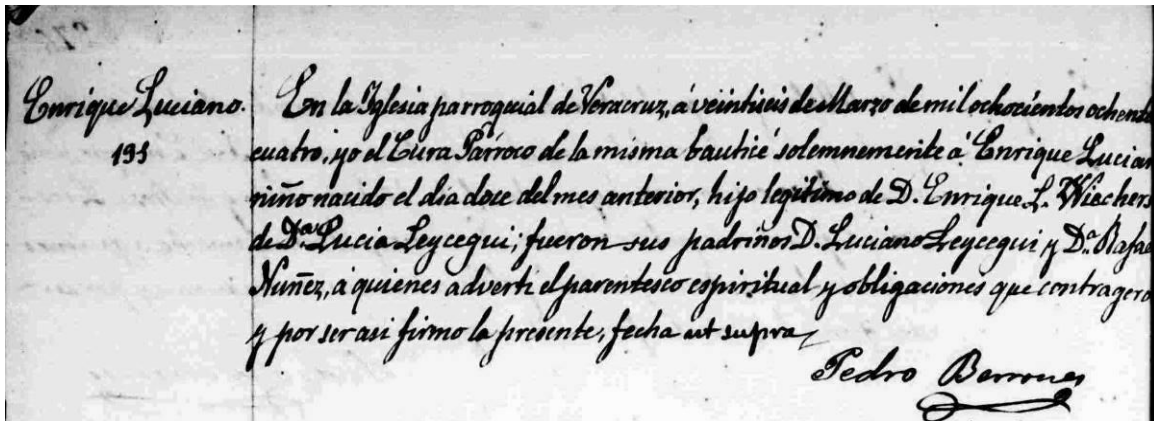 Enrique Luciano. En la Iglesia parroquial de Veracruz, á veintiseis de Marzo de mil ochocientos ochenta
193 cuatro, yo el Cura Párroco de la misma bauticé solemnemente á Enrique Lucian
niño nacido el dia doce del mes anterior, hijo legitimo de D. Enrique L. Wiechers
de Da. Lucia Leycegui; fueron sus padrinos D. Luciano Leycegui y Da. Rafae
Nuñez, á quienes adverti el parentesco espiritual y obligaciones que contragero
y por ser asi firmo la presente, fecha ut supra
Pedro Berrones